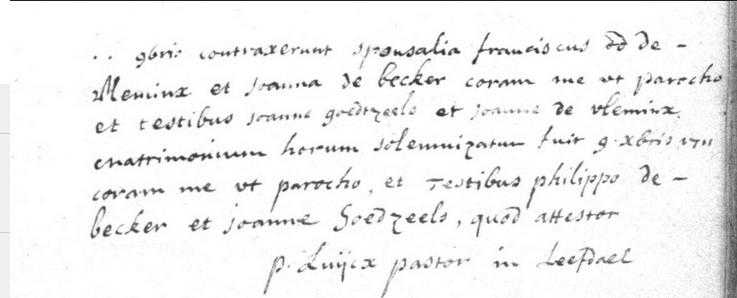 .. 9bris contraxerunt sponsalia franciscus de -
vleminx et Joanna de becker coram me vt parocho
et testibus Joanne goedtzeels et Joanne de vleminx.
matrimonium horum solemnizatum fuit 9. xbris
coram me vt parocho, et testibus philippo de -
becker et Joanne Goedzeels, quod attestor
p. Luijcx pastor in Leefdael